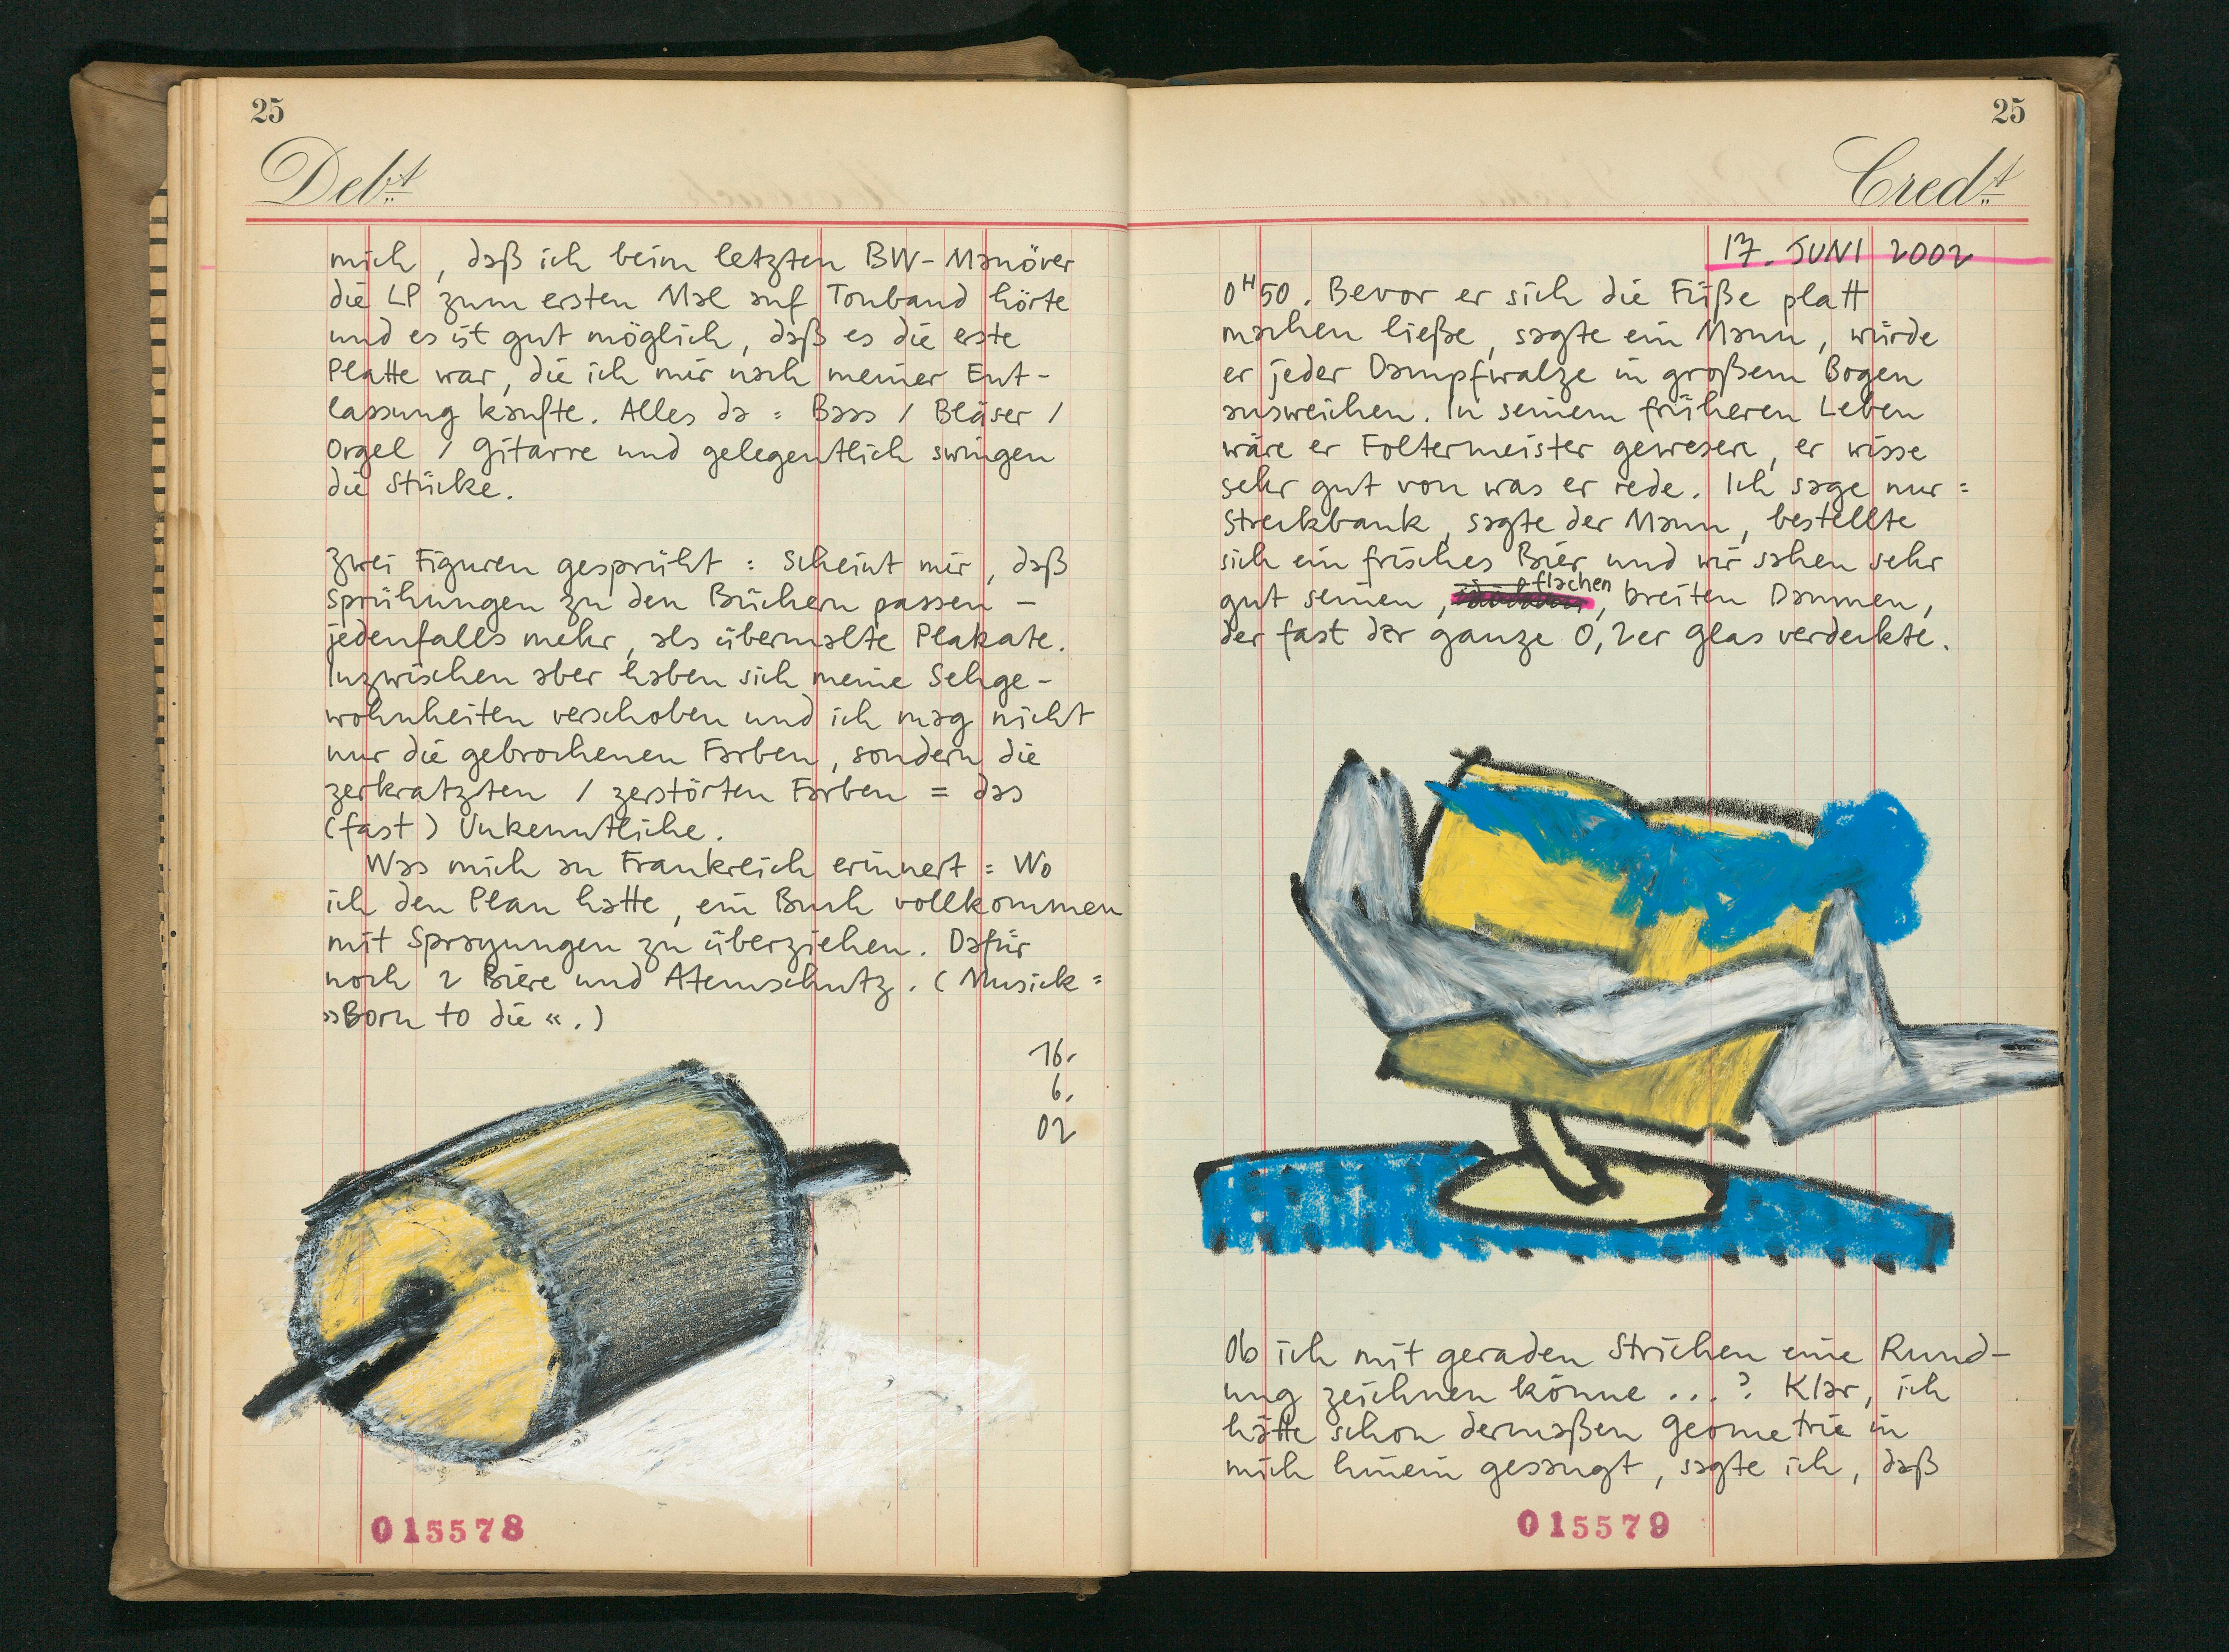 25
Debt
mich, daß ich beim letzten BW-Manöver
die LP zum ersten Mal auf Tonband hörte
und es ist gut möglich, daß es die erste
Platte war, die ich mir nach meiner Ent-
lassung kaufte. Alles da: Bass / Bläser /
Orgel / Gitarre und gelegentlich swingen
die Stücke.
Zwei Figuren gesprüht: Scheint mir, daß
Sprühungen zu den Büchern passen –
jedenfalls mehr, als übermalte Plakate.
Inzwischen aber haben sich meine Sehge-
wohnheiten verschoben und ich mag nicht
nur die gebrochenen Farben, sondern die
zerkratzten / zerstörten Farben = das
(fast) Unkenntliche.
Was mich an Frankreich erinnert: Wo
ich den Plan hatte, ein Buch vollkommen
mit Sprayungen zu überziehen. Dafür
noch 2 Biere und Atemschutz. (Musick:
»Born to die«.)
16.
6.
02
015578
25
Credt
17. JUNI 2002
0H50. Bevor er sich die Füße platt
machen ließe, sagte ein Mann, würde
er jeder Dampfwalze in großem Bogen
ausweichen. In seinem früheren Leben
wäre er Foltermeister gewesen, er wisse
sehr gut von was er rede. Ich sage nur:
Streckbank, sagte der Mann, bestellte
sich ein frisches Bier und wir sahen sehr
gut seinen, flachen, breiten Daumen,
der fast der ganze 0,2er Glas verdeckte.
Ob ich mit geraden Strichen eine Rund-
ung zeichnen könne ...? Klar, ich
hätte schon dermaßen Geometrie in
mich hinein gesaugt, sagte ich, daß
015579